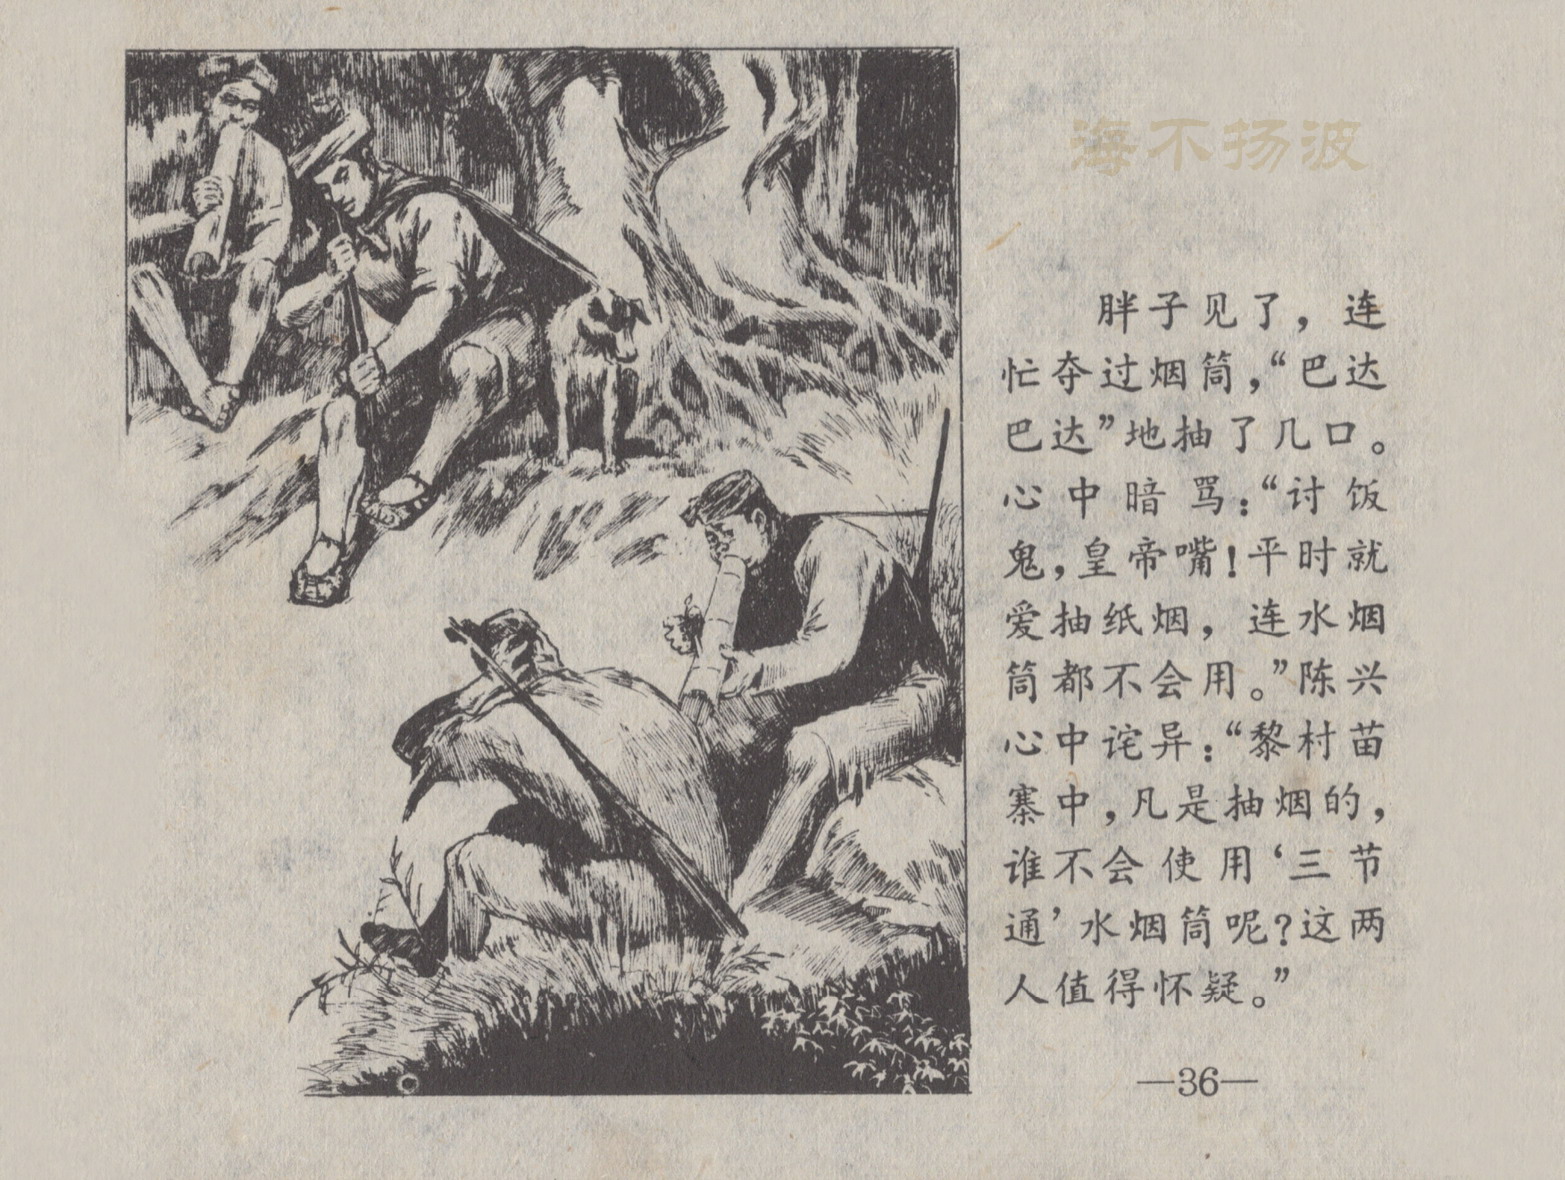 海不扬波
胖子见了，连
忙夺过烟筒，“巴达
巴达”地抽了几口。
心中暗骂：“讨饭
鬼，皇帝嘴！平时就
爱抽纸烟，连水烟
筒都不会用。”陈兴
心中诧异：“黎村苗
寨中，凡是抽烟的，
谁不会使用‘三节
通’水烟筒呢？这两
人值得怀疑。”
—36—